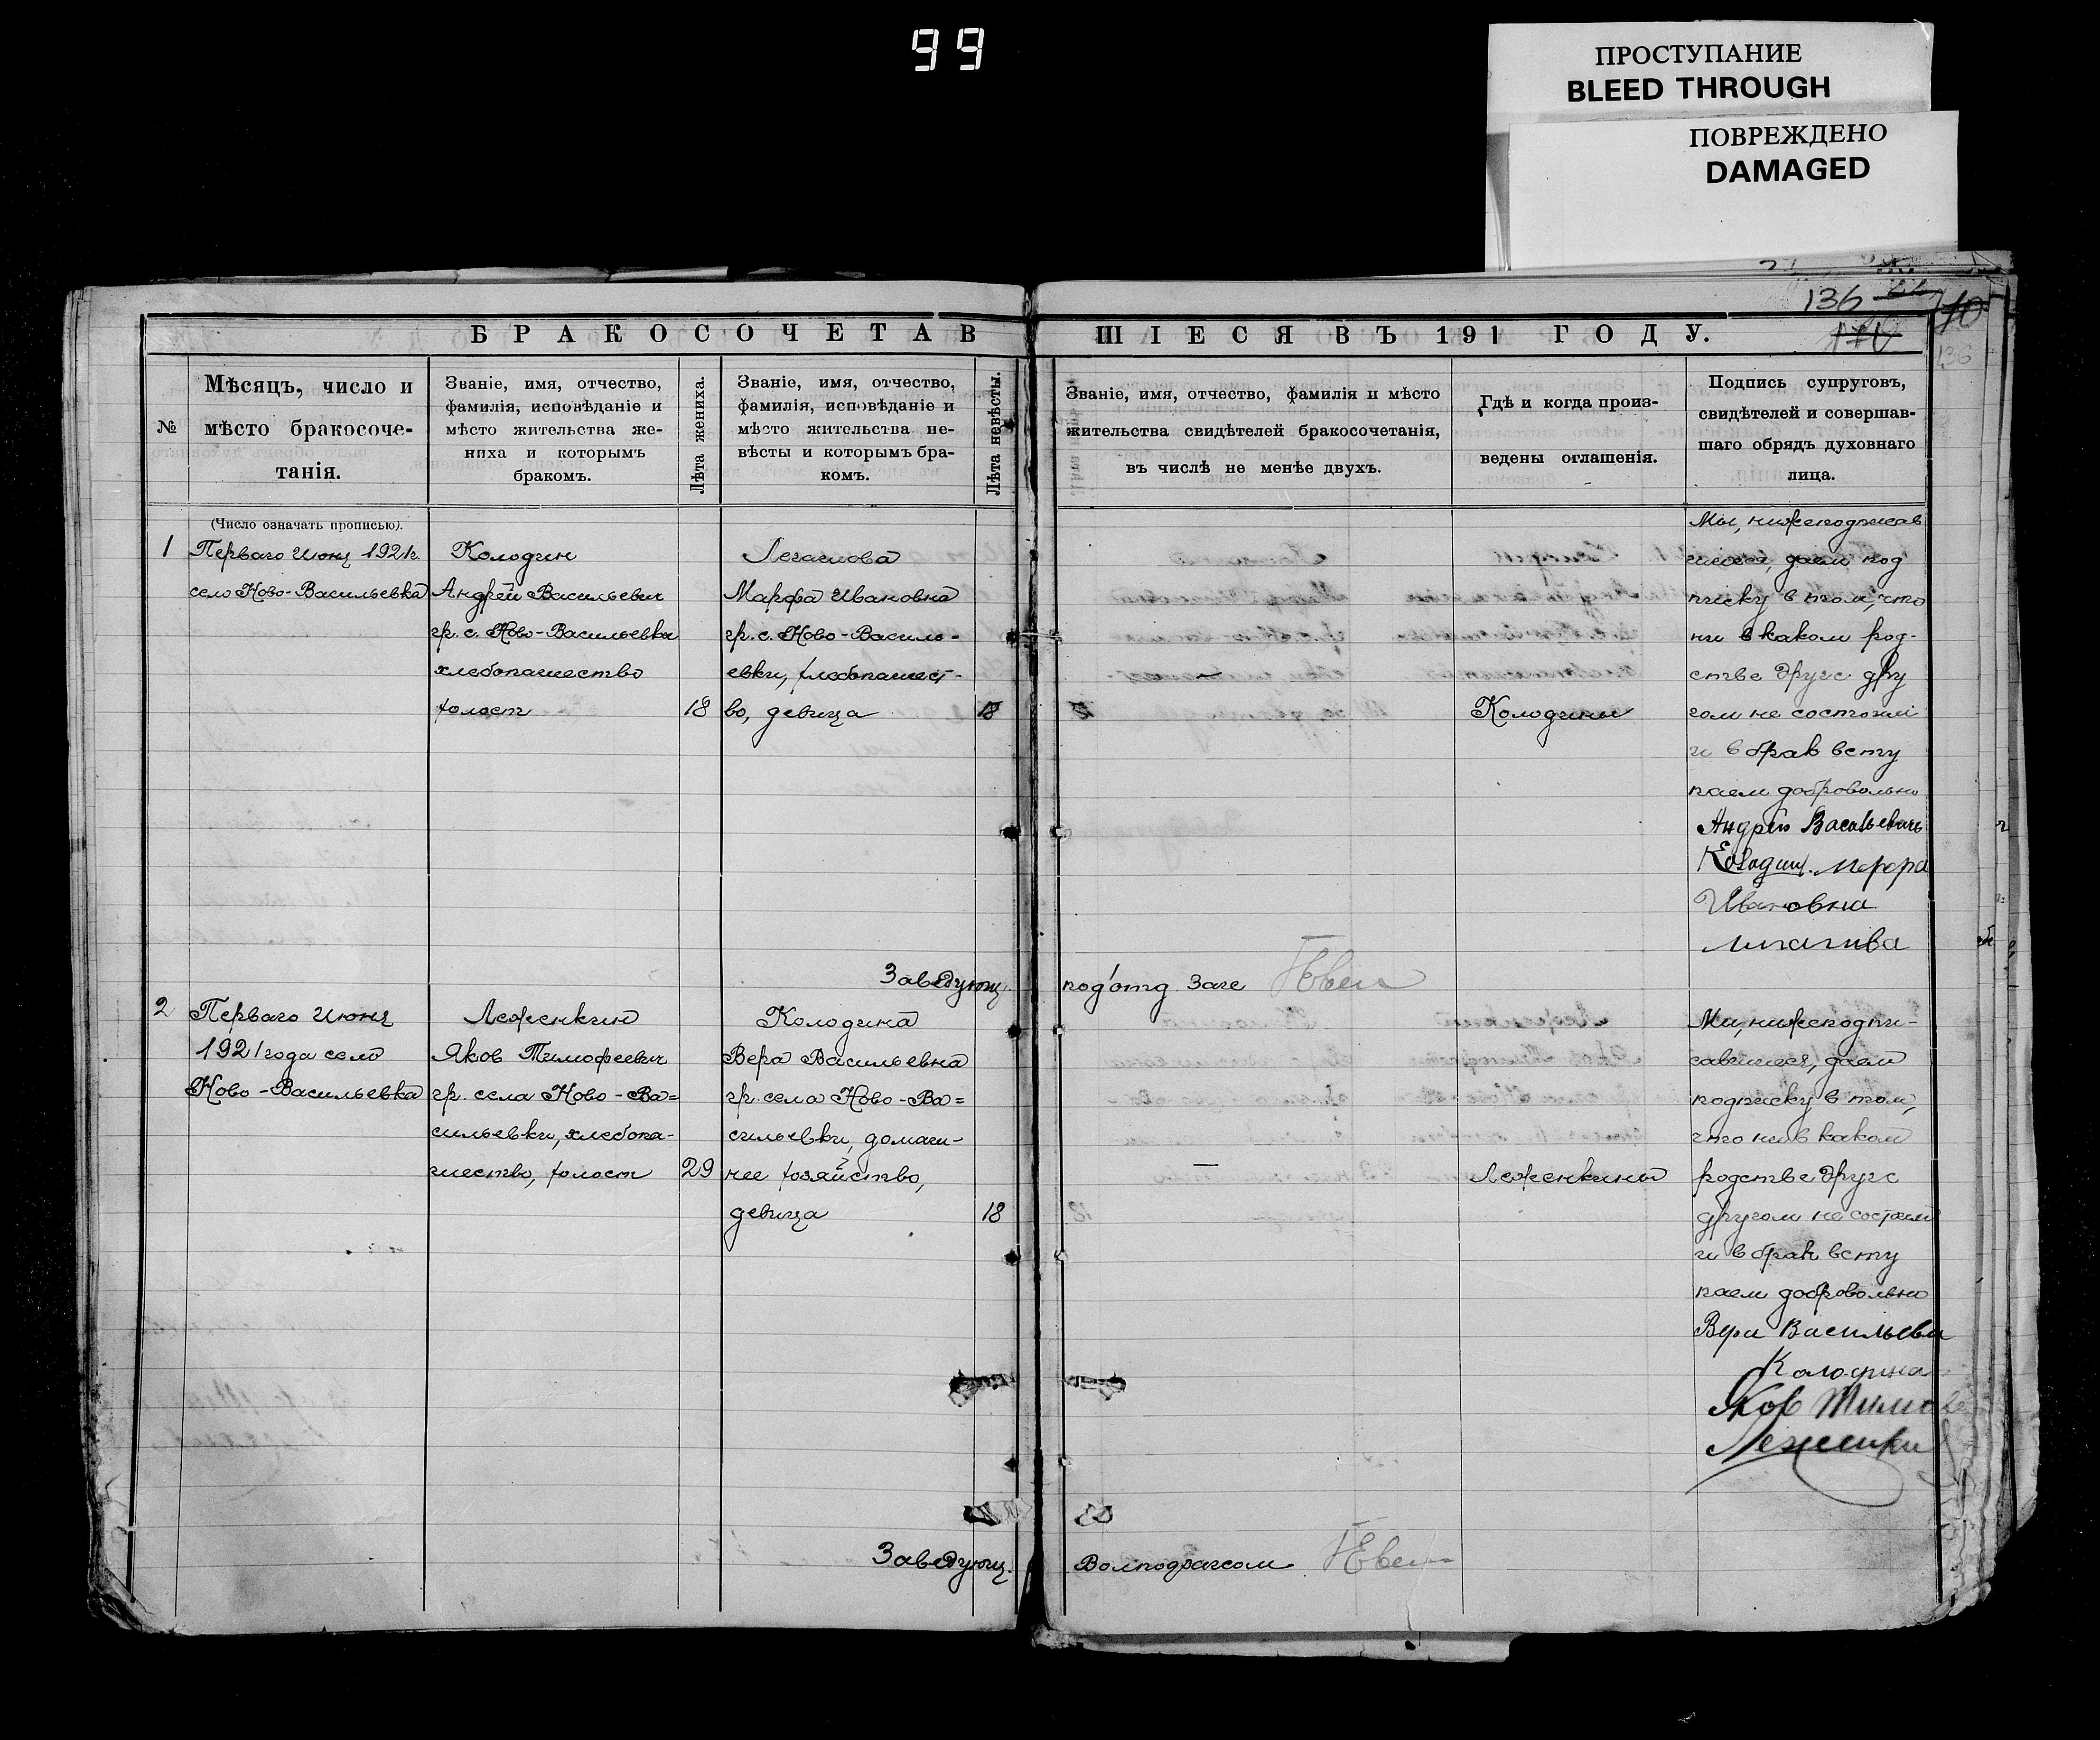 99
ПРОСТУПАНИЕ
BLEED THROUGH
ПОВРЕЖДЕНО
DAMAGED
136
БРАКОСОЧЕТАВ
ШІЕСЯ ВЪ 191 ГОДУ.
№
Мѣсяцъ, число и
мѣсто бракосоче-
танія.
Званіе, имя, отчество,
фамилія, исповѣданіе и
мѣсто жительства же-
ниха и которымъ
бракомъ.
Лѣта жениха.
Званіе, имя, отчество,
фамилія, исповѣданіе и
мѣсто жительства не-
вѣсты и которымъ бра-
комъ.
Лѣта невѣсты.
Званіе, имя, отчество, фамилія и мѣсто
жительства свидѣтелей бракосочетанія,
въ числѣ не менѣе двухъ.
Гдѣ и когда произ-
ведены оглашенія.
Подпись супруговъ,
свидѣтелей и совершав-
шаго обрядъ духовнаго
лица.
(Число означать прописью).
1
Перваго Июня 1921г.
село Ново-Васильевка
Колодин
Андрей Васильевич
гр. с. Ново-Васильевка
хлебопашество
холост
18
Марфа Ивановна
гр. с. Ново-Василь-
евки, хлебопашест-
во, девица
18
Колодины
Мы, нижеподписав
шиеся, даем под
писку в том, что
ни в каком род-
стве друг с дру
гом не состоим
и в брак всту
паем добровольно
Андрей Васильевич
Колодин.
Ивановна
Заведующ.
под'отд. Загс
2
Перваго Июня
1921 года село
Ново-Васильевка
Леженкин
Яков Тимофеевич
гр. села Ново-Ва=
сильевки, хлебопа-
шество, холост
29
Колодина
Вера Васильевна
гр. села Ново-Ва=
сильевки, домаш-
нее хозяйство,
девица
18
—
Леженкины
Мы, нижеподпи-
савшиеся, даем
подписку в том,
что ни в каком
родстве друг с
другом не состоим
и в брак всту
паем добровольно
Вера Васильевн
Колодина
Яков
Заведующ.
Волподзагсом